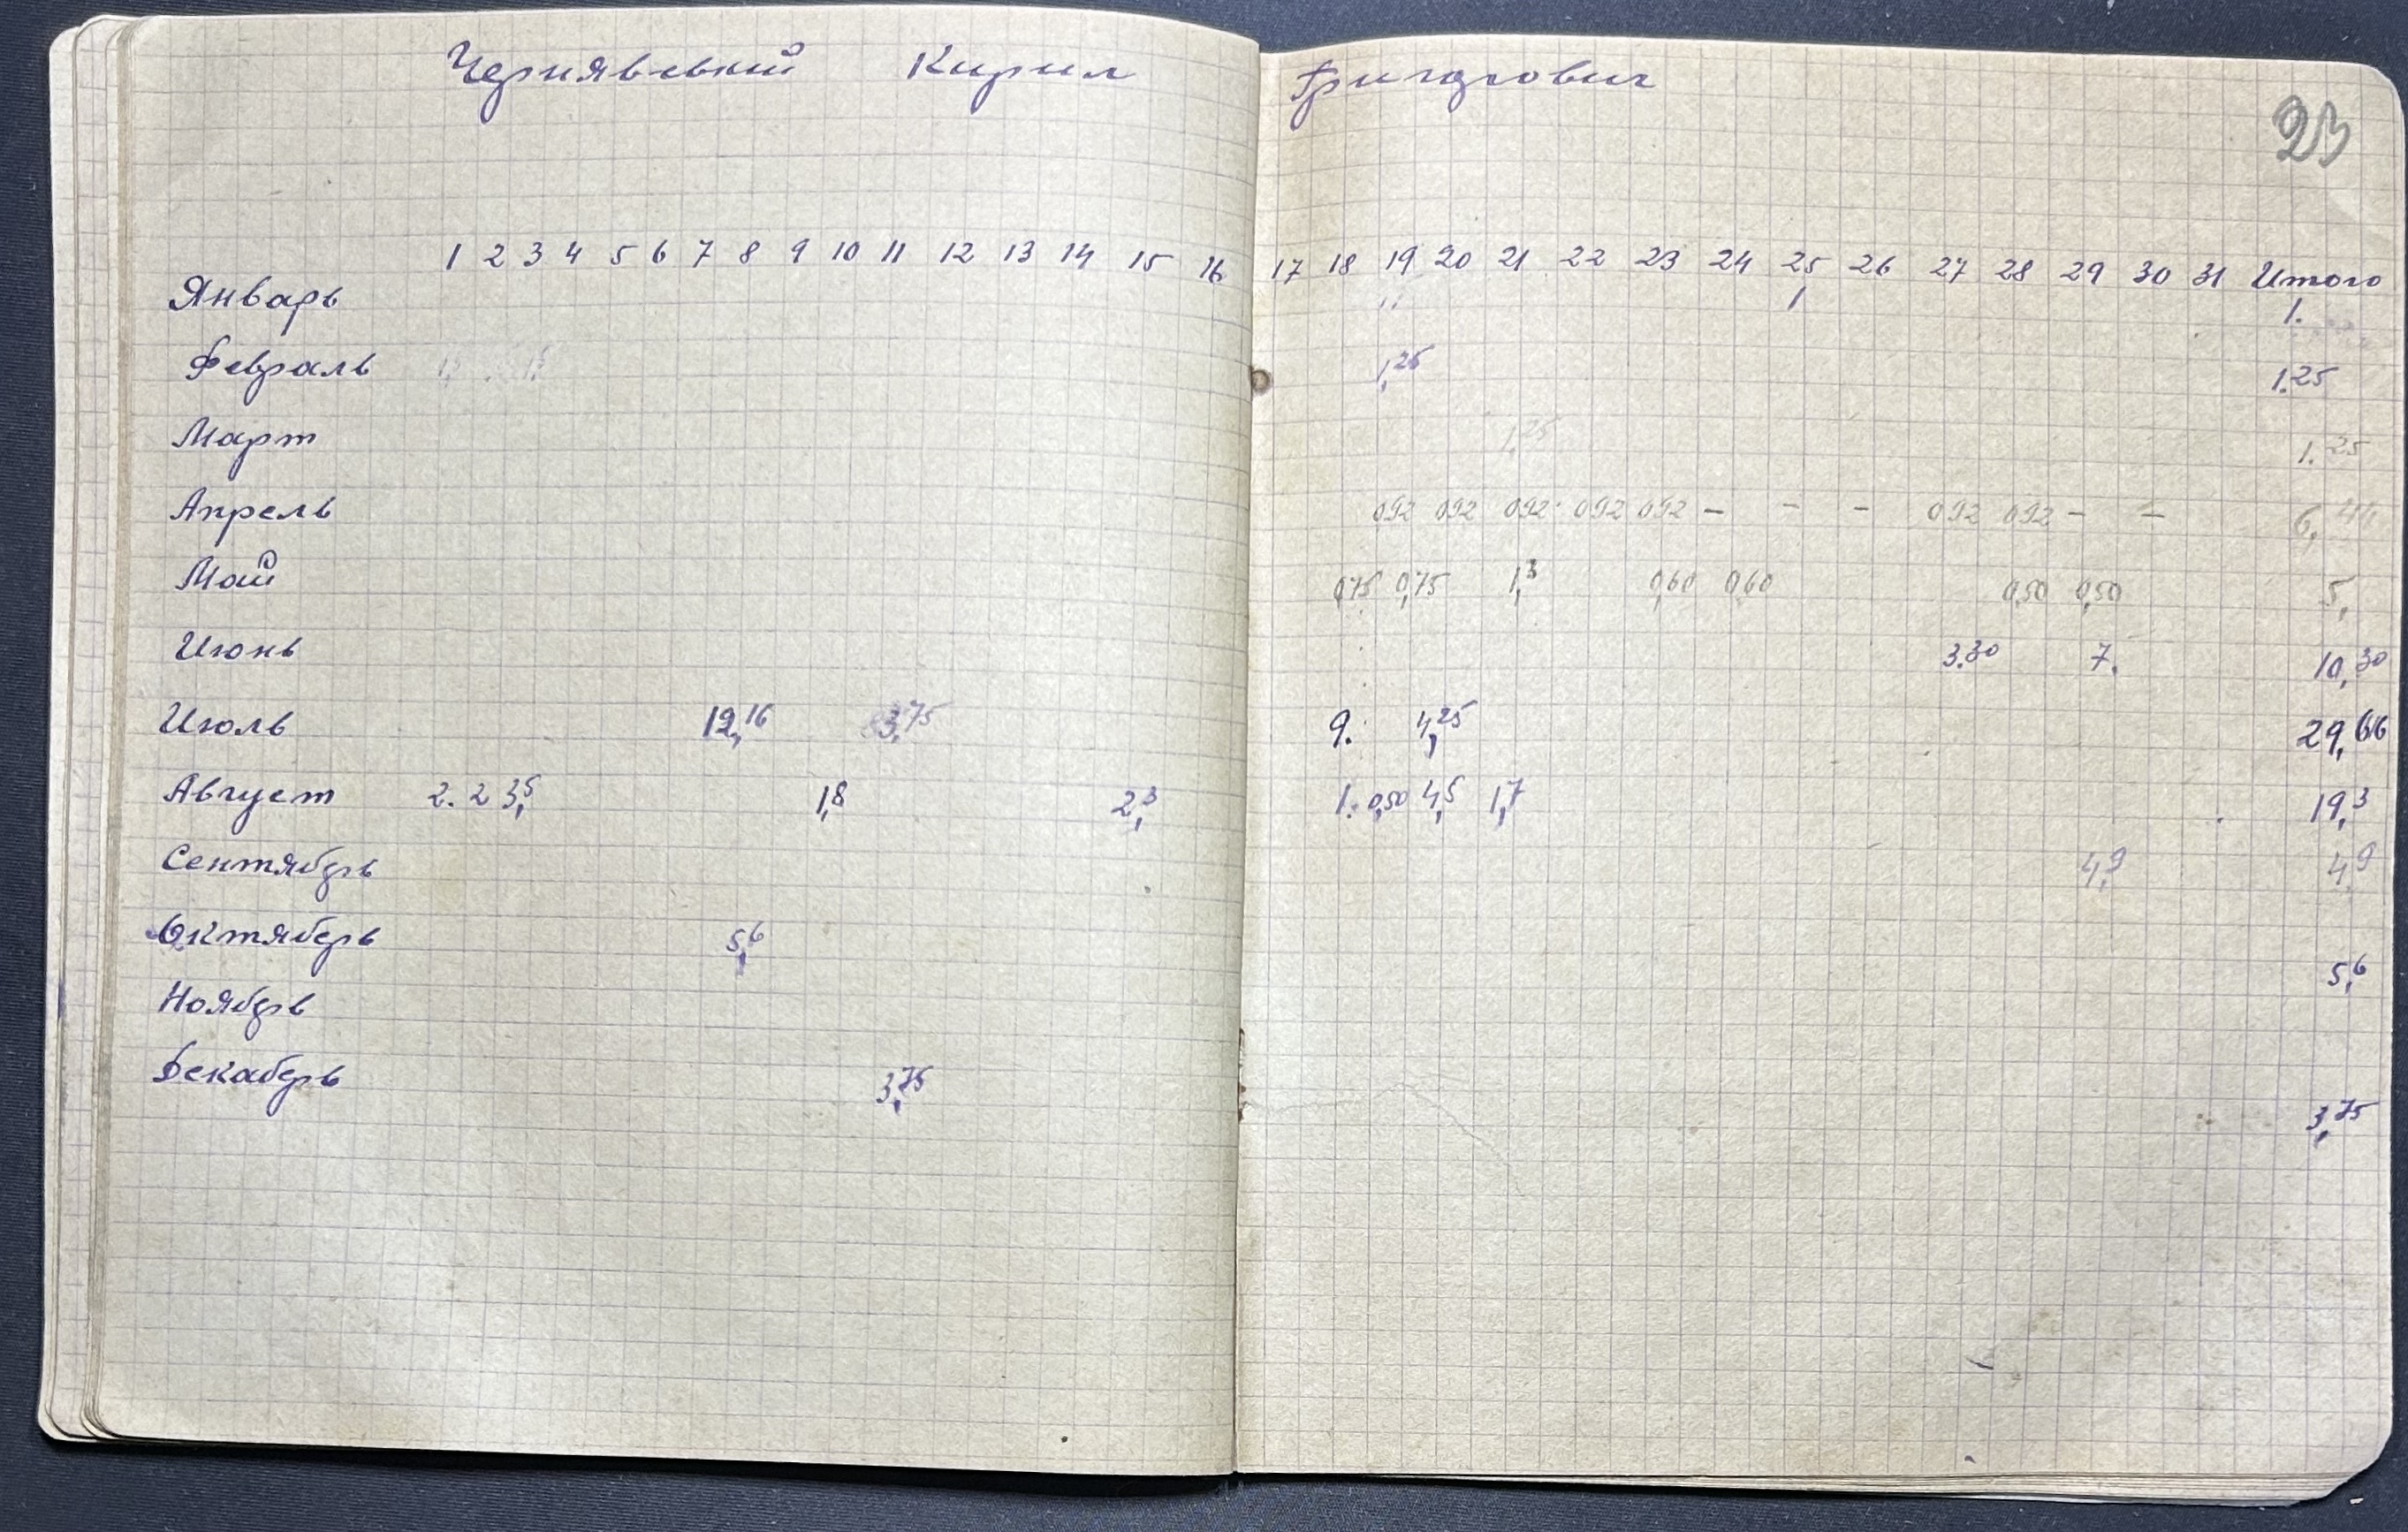 Чернявский Кирил Григорович
23
1 2 3 4 5 6 7 8 9 10 11 12 13 14 15 16 17 18 19 20 21 22 23 24 25 26 27 28 29 30 31 Итого
Январь 1 1.
Февраль 1,25 1.25
Март 1,25 1.25
Апрель 092 092 092 092 092 – – – 092 092 – – 6,44
Май 0,75 0,75 1,3 0,60 0,60 0,50 0,50 5,
Июнь 3.30 7. 10,30
Июль 12,16 3,75 9. 4,25 29,66
Август 2. 2 3,5 1,8 2,3 1. 0,50 4,5 1,7 19,3
Сентябрь 4,9 4,9
Октяберь 5,6 5,6
Ноябрь
Декаберь 3,75 3,75